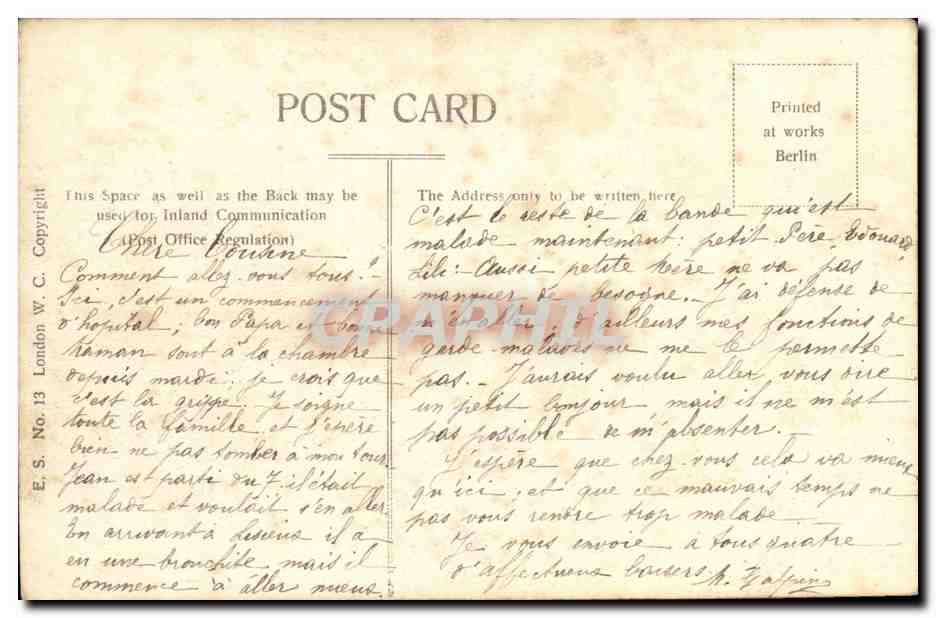 POST CARD
Printed
at works
Berlin
This Space as well as the Back may be
used for Inland Communication
(Post Office Regulation)
The Address only to be written here
E. S. No. 13 London W. C. Copyright
CPARHIL
Chère Cousine
Comment allez-vous tous? -
Ici, c'est un commencement
d'hôpital; bon Papa et bonne
Maman sont à la chambre
depuis mardi; je crois que
c'est la grippe. Je soigne
toute la famille et j'espère
bien ne pas tomber à mon tour
Jean est parti du 7. il était
malade et voulait s'en aller
En arrivant à Lisieux il a
eu une bronchite, mais il
commence à aller mieux.
C'est le reste de la bande qu'est
malade maintenant: petit Père, Edouard,
Lili: Aussi petite Mère ne va pas
manquer de besogne. - J'ai défense de
m'en aller; d'ailleurs mes fonctions de
garde-malades ne me le permette
pas. - J'aurais voulu aller vous dire
un petit bonjour mais il ne m'est
pas possible de m'absenter. -
J'espère que chez-vous cela va mieux
qu'ici; et que ce mauvais temps ne
pas vous rendre trop malade
Je vous envoie à tous quatre
d'affectueux baisers